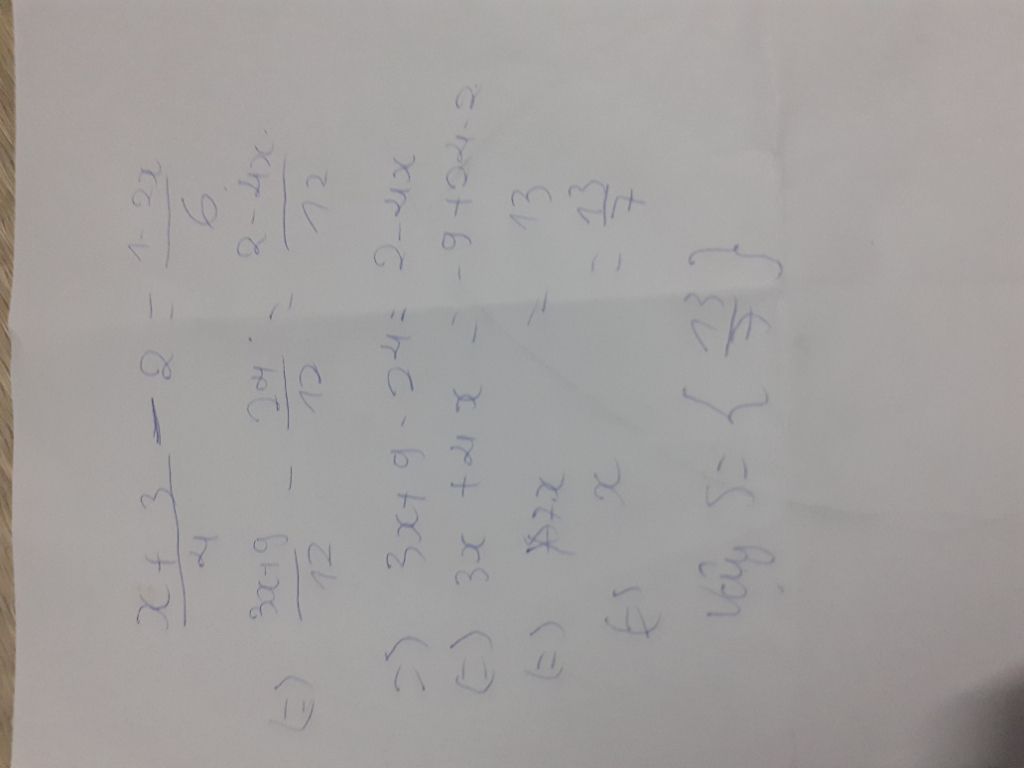 x + 3/4 - 2 = 1 - 2x/6
(=) 3x+9/12 - 24/12 = 2 - 4x/12
=) 3x + 9 - 24 = 2 - 4x
(=) 3x + 4x = -9 + 24 - 2
(=) 7x = 13
(=) x = 13/7
Vậy S = { 13/7 }